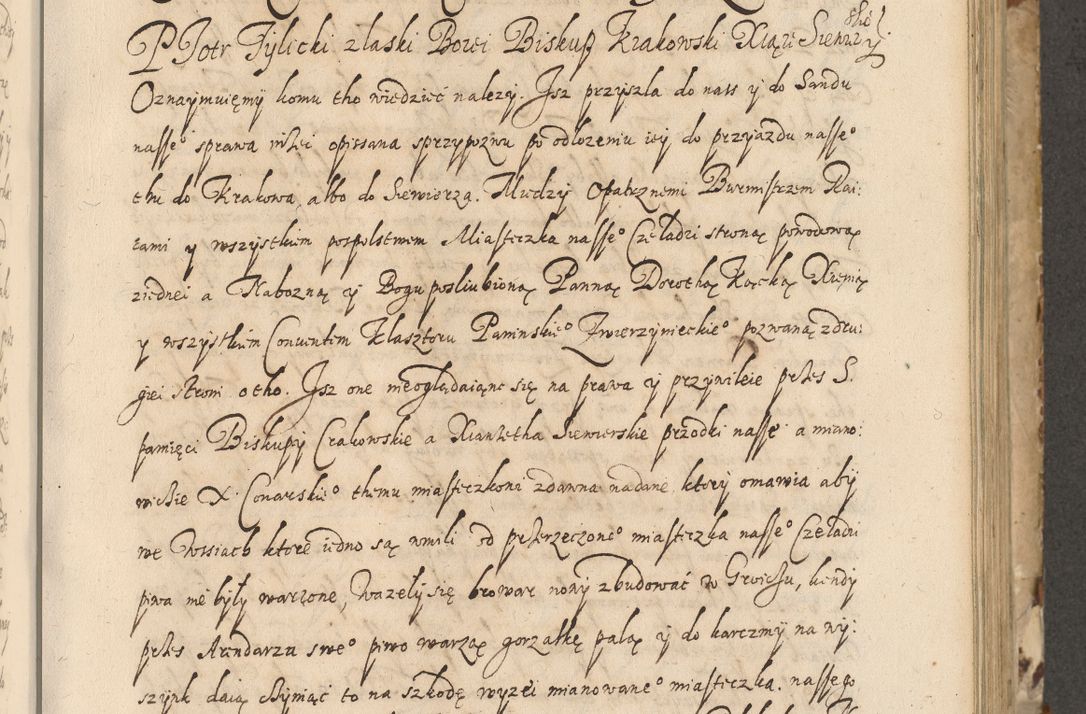 PJotr Tÿlicki z laski Bozei Biskup Krakowski Xiąże Siewier skÿ
Oznaÿmuięmÿ komu tho wiedzieć nalezÿ. Jsz przÿszla do nass ÿ do Sandu
nassę° sprawa nizei opissana sprzÿpozwu po odlozeniu ieÿ do przÿiazdu nasse°
thu do Krakowa, albo do Siewierza. Miedzÿ Opatrznemi Burmistrzem Rai:
cami ÿ wszÿstkiem pospolstwem Miasteczka nasse° Czeladzi stroną powodową
ziednei a Nabozną ÿ Bogu posliubioną Panną Dorothą Kącką Xienią
ÿ wszÿstkim Conuentem Klasztoru Paninskie° Zwierzÿnieckie° pozwaną zdru:
giei stroni otho. Jsz one nieoglądaiąnc się na prawa ÿ przÿwileie przes S.
pamięci Biskupÿ Crakowskie a Xianżetha Siewierskie przodki nasse a miano:
wicie X. Conarskie° themu miasteczkoni zdawna nadane ktorÿ omawia abÿ
we Wssiach ktore iedno są wmili od przerzeczone° miasteczka nasse° Czeladzi
piwa nie bÿłÿ warzone, Wazełÿ się browar nowÿ zbudować w Groiessu, kendÿ
przes Arendarza swe° piwo warzą gorzałkę palą ÿ do karczmÿ na wÿ:
szÿnk daią cżÿniąć to na szkodę wÿzei mianowane° miasteczka nassego